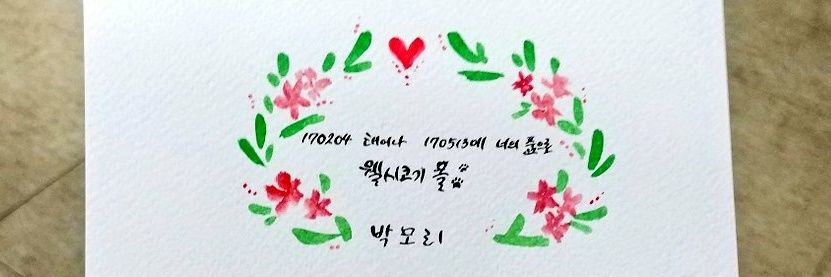 170204 태어나 170513에 너의 품으로
웰시코기 몰
박모리